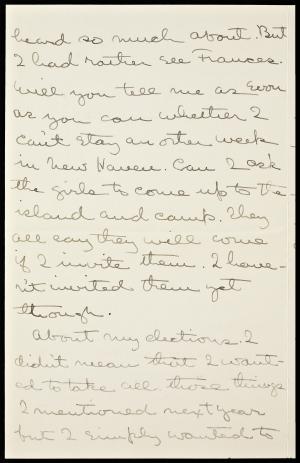 heard so much about. But
I had rather see Frances.
Will you tell me as soon
as you can whether I
can't stay another week
in New Haven. Can I ask
the girls to come up to the
island and camp. They
all say they will come
if I invite them. I have-
n't invited them yet
though.
About my elections. I
didn't mean that I want-
ed to take all those things
I mentioned next year
but I simply wanted to